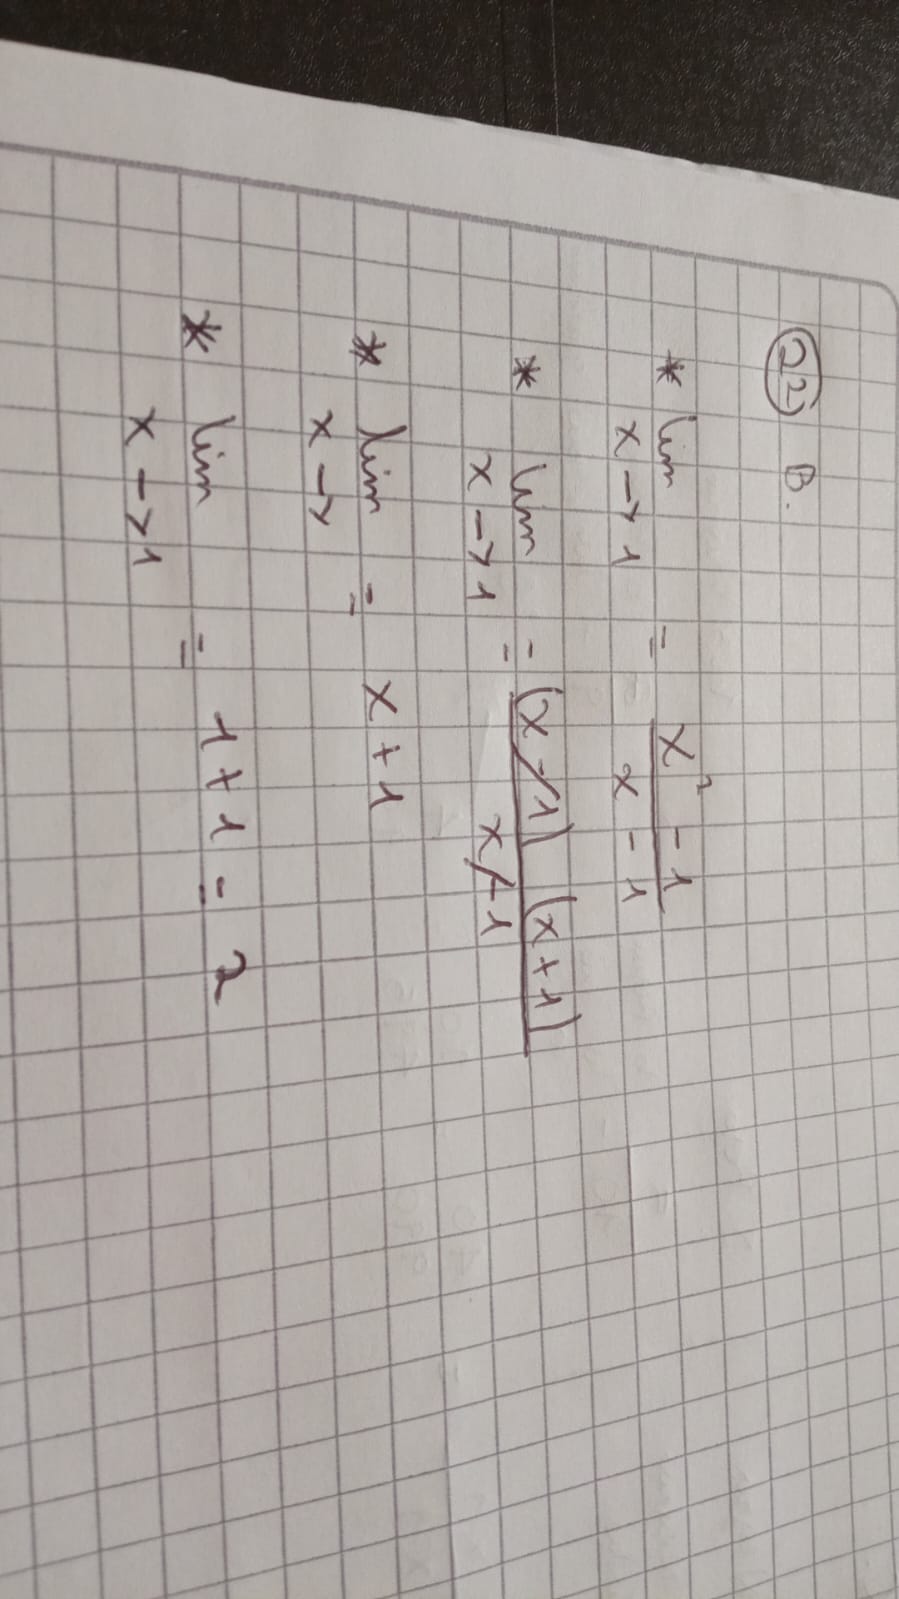 22) B.
* lim = x² - 1
x → 1 x - 1
* lim = (x - 1) (x + 1)
x → 1 x - 1
* lim = x + 1
x →
* lim = 1 + 1 = 2
x → 1